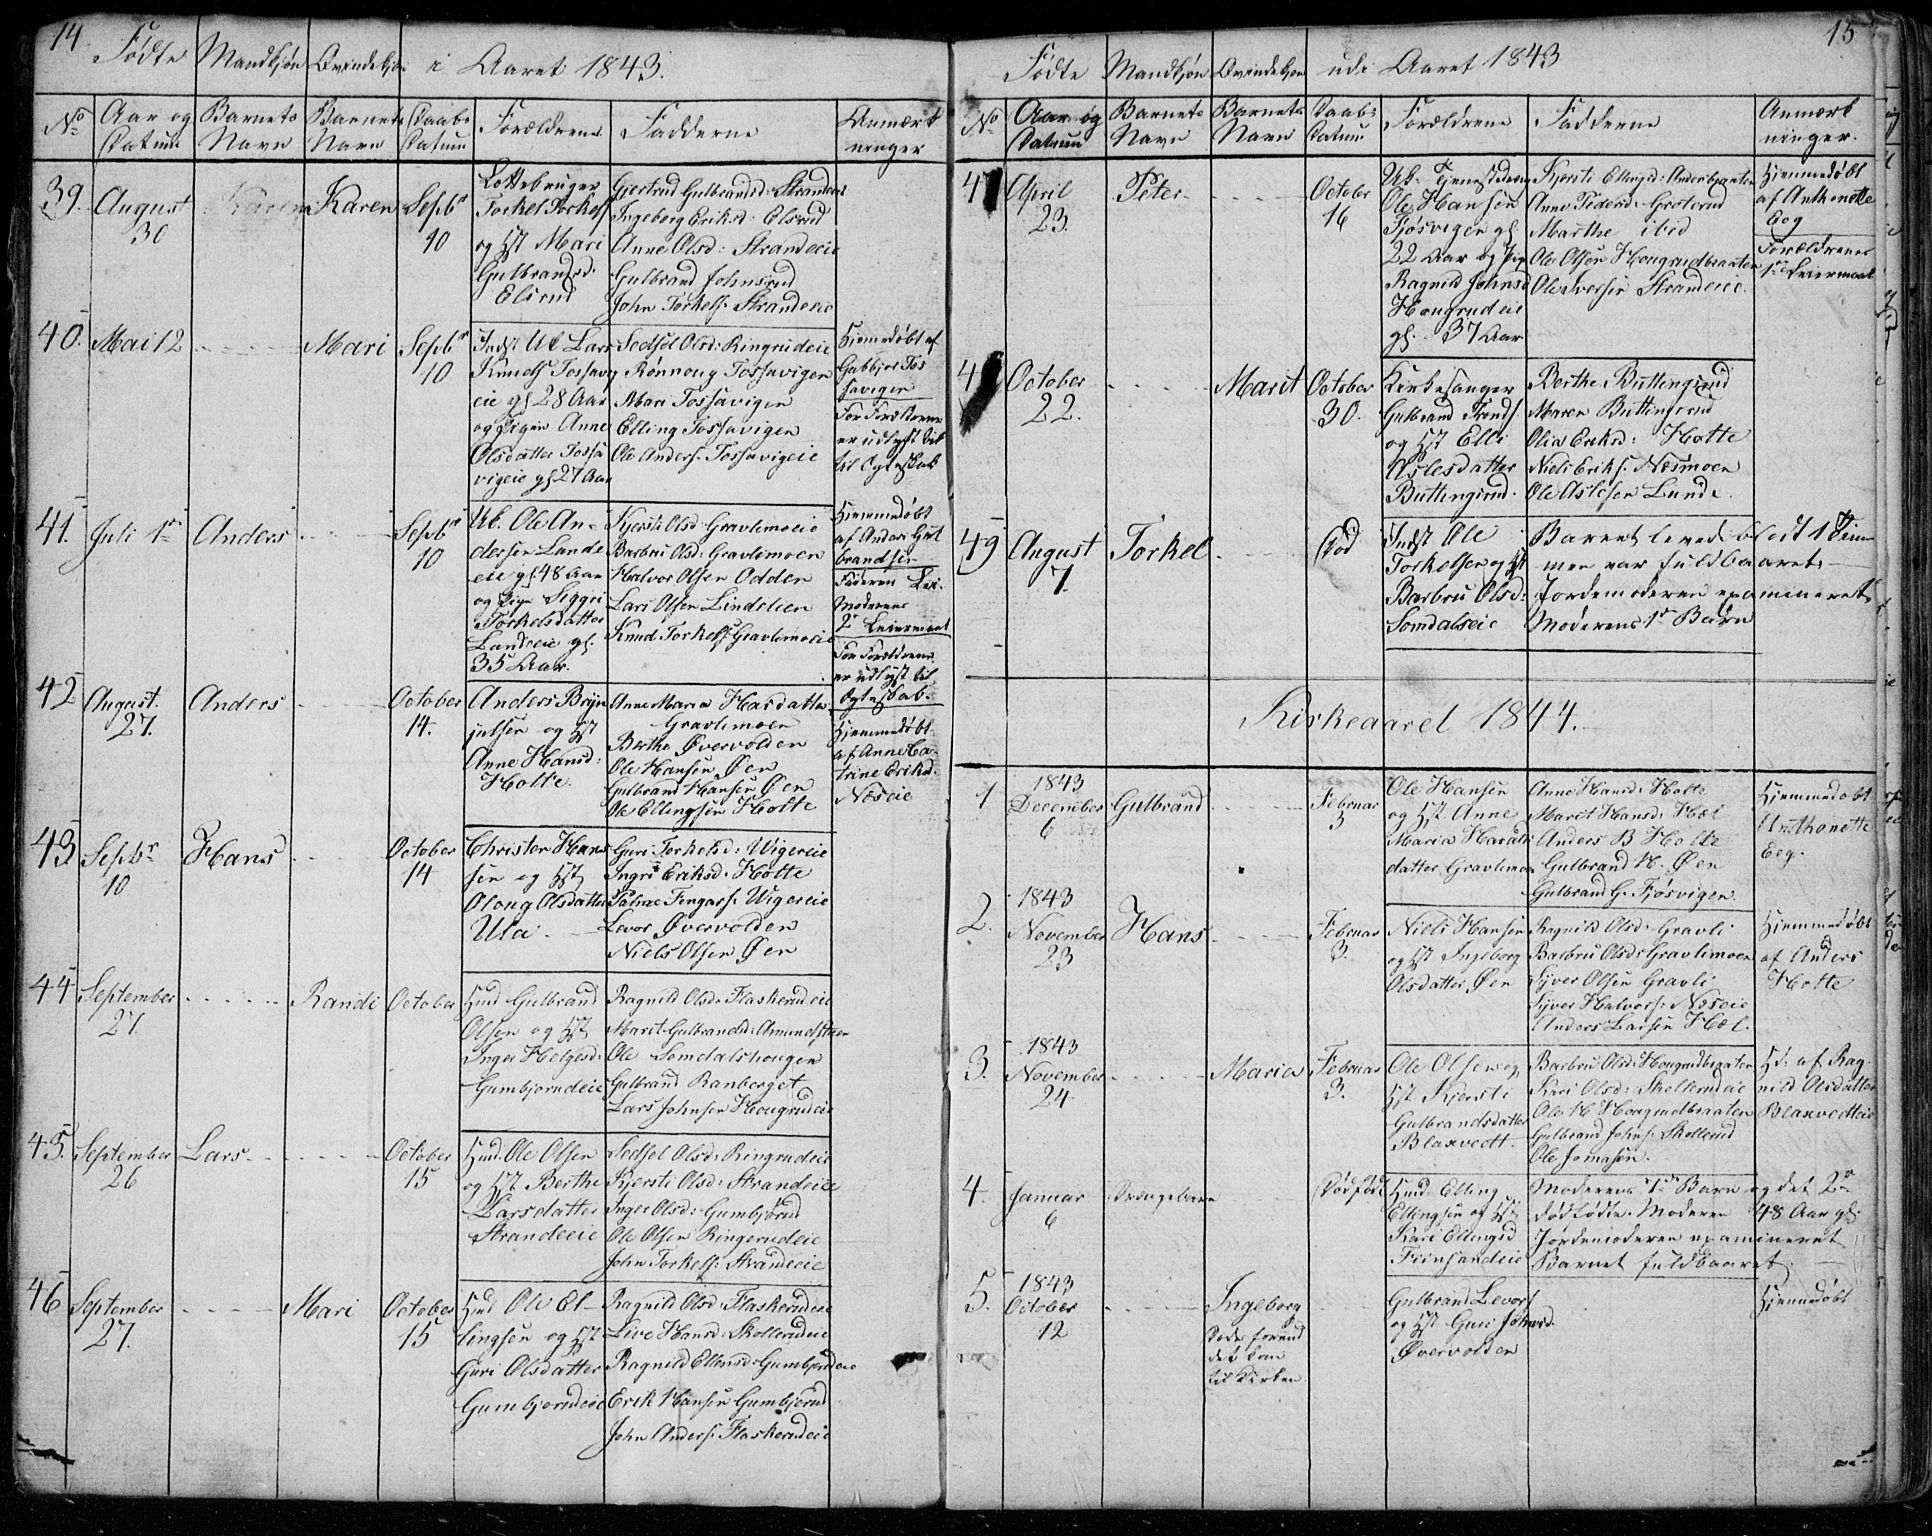 14. Fødte Mandkjøn Qvindekjøn i Aaret 1843.
No
Aar og Datum
Barnets Navn
Barnets Navn
Daabs Datum
Forældrene
Fadderne
Anmærkninger
39. August 30
Karen Karen
Septbr 10
Torkel Torkels
og Hst Mari
Gulbrandsd.
Elsrud
Gjertrud Gulbrandsd: Strandeie
Ingeborg Eriksd: Elsrud
Anne Olsd: Strandeie
Gulbrand Johnsrud
John Torkels: Strandeie
40. Mai 12
Mari
Septbr 10
Indst Uk Lars
Knuds Tossavig
eie gl 28 Aar
og Pigen Anne
Olsdatter Tossa
vigeie gl 27 Aar
Sedsel Olsd: Ringrudeie
Rønnoug Tossavigen
Mari Tossavigen
Elling Tossavigen
Ole Anders: Tossavigeie
Hjemmedøbt af
Gubbjor Tos
savigen
For Forældrene
er udlyst til
til Ægteskab
41. Juli 1ste
Anders
Septbr 10
Uk. Ole An-
dersen Lunde
eie gl 48 Aar
og Pige Siggri
Torkelsdatter
Lundeeie gl.
35 Aar.
Kjersti Olsd: Gravlimoeie
Barbru Olsd: Gravlimoen
Halvor Olsen Odden
Lars Olsen Lindelien
Knud Torkels Gravlimoeie
Hjemmedøbt
af Anders Gul
brandsen
Faderens
Moderens
2det Leiermaal
For Forældrene
er udlyst til
Ægteskab.
42 August. 27.
Anders
October 14.
Anders Bryn
julsen og Hst
Anne Hansd:
Holte.
Anne Maria Hardatter
Gravlimoen
Berthe Øvervolden
Ole Hansen Øen
Gulbrand Hansen Øen
Ole Ellingsen Holte
Hjemmedøbt
af Anne Ca-
trine Eriksd.
Næseie
43 Septbr 10
Hans
October 14
Christen Han
sen og Hst
Aloug Olsdatter
Ula.
Guri Torkelsd: Vigereie
Ingri Eriksd: Holte
Vigereie
Levor Øvervolden
Niels Olsen Øen
44 September 27.
Randi
October
Hmd Gulbrand
Olsen og Hst
Inger Helgesd:
Gumbjorudeie
Ragnild Olsd: Flaskerudeie
Marit Gulbrandsd:
Ole Somdalshougen
Gulbrand Ranberget
Lars Johnsen Hougrudeie
45. September 26
Lars
October 15
Hmd. Ole Olsen
og Hst Berthe
Larsdatter
Strandeeie
Sedsel Olsd: Ringrudeie
Kjersti Olsd: Strandeie
Inger Olsd: Gumbjørud
Ole Olsen Ringerudeie
John Torkels: Strandeeie
46 September 27.
Mari
October 15
Hmd Ole El-
lingsen og Hst
Guri Olsdatter
Gumbjorudeie
Ragnild Olsd: Flaskerudeie
Live Hansd: Skollerudeie
Ragnild Ellensd: Gumbjorudeie
Erik Hansen Gumbjorud
John Anders: Flaskerudeie
15
Fødte Mandkjøn Qvindekjøn udi Aaret 1843
No
Aar og Datum
Barnets Navn
Barnets Navn
Daabs Datum
Forældrene
Fadderne
Anmærkninger.
47 April 23.
Peter
October 16
Uk. Tjenestedreng
Ole Hansen
Fjøsvigen gl.
22 Aar og Pig
Ragnild Johnsd
Hougrudeie
gl. 37 Aar
Kjersti Ellingsd:
Anne Pedersd: Groterud
Marthe ibid
Ole Olsen Hougrudbraaten
Ole Iversen Strandeie
Hjemmedøbt
af Anthonette
Eeg
Forældrenes
1ste Leiermaal
48 October 22.
Marit
October 30.
Kirkesanger
Gulbrand Trends.
og Hst Elli
Aslesdatter
Buttengrud.
Berthe Buttengrud
Maren Buttengrud
Olia Eriksd: Holte
Niels Eriks: Næsmoen
Ole Aslesen Lunde.
49 August 7.
Torkel
Død
Indst Ole
Torkelsen og Hst
Barbru Olsd:
Somdalseie
Barnet levede blot 1 Time
men var fuldbaaret
Jordemoderen examineret
Moderens 1ste Barn
Kirkeaaret 1844.
1 1843 December 6
Gulbrand
Februar 3
Ole Hansen
og Hst Anne
Maria Harals
datter Gravlimoen
Anne Hansd: Holte
Marit Hansd: Hæl
Anders B Holte
Gulbrand H. Øen
Gulbrand G. Fjøsvigen.
Hjemmedøbt
Anthonette
Eeg.
2. 1843 November 23
Hans
Februar 3.
Niels Hansen
og Hst Ingeborg
Olsdatter Øen
Ragnild Olsd: Gravli
Barbru Olsd: Gravlimoen
Syver Olsen Gravli
Syver Halvors: Næseie
Anders Larsen Hæl.
Hjemmedøbt
af Anders
Holte
3. 1843 November 24
Maria
Februar 3.
Ole Olsen og
Hst Kjersti
Gulbrandsdatter
Blaxvedt.
Barbru Olsd: Hougrudbraaten
Kari Olsd: Skollerudeie
Ole H Hougrudbraaten
Gulbrand Johns: Skollerud
Ole Jonasen.
Hd: af Rag-
nild Olsdatter
Blaxvedteie
4. Januar 6
Drengebarn
Dødfødt
Hmd Elling
Ellingsen og Hst
Kari Ellingsd
Finsandeie
Moderens 1ste Barn og det 2det
dødfødte. Moderen 48 Aar gl:
Jordemoderen examineret
Barnet fuldbaaret.
5. 1843 October 12
Ingeborg
Døde forend
det kom
til Kirken
Gulbrand Levors
og Hst Guri Johnsd.
Øvervolden
Hjemmedøbt